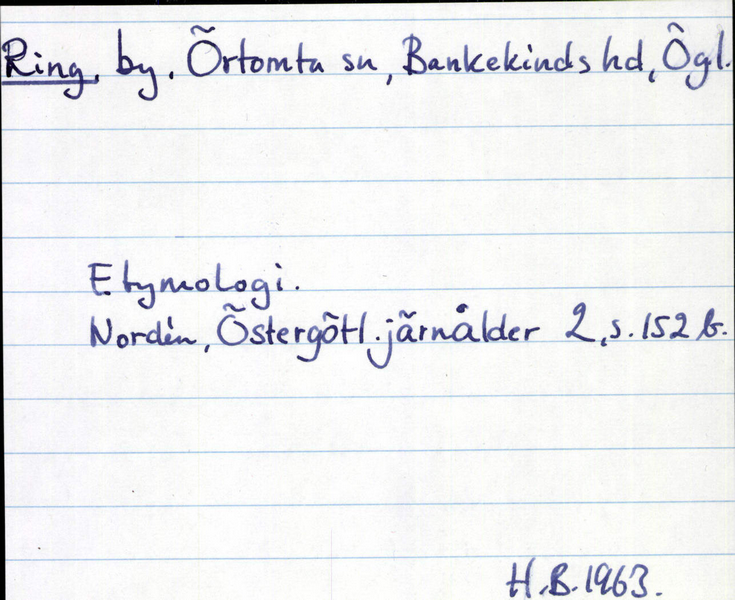 Ring, by, Örtomta sn, Bankekinds hd, Ögl.
Etymologi.
Nordén, Östergötl. järnålder 2, s. 152 b.
H.B. 1963.